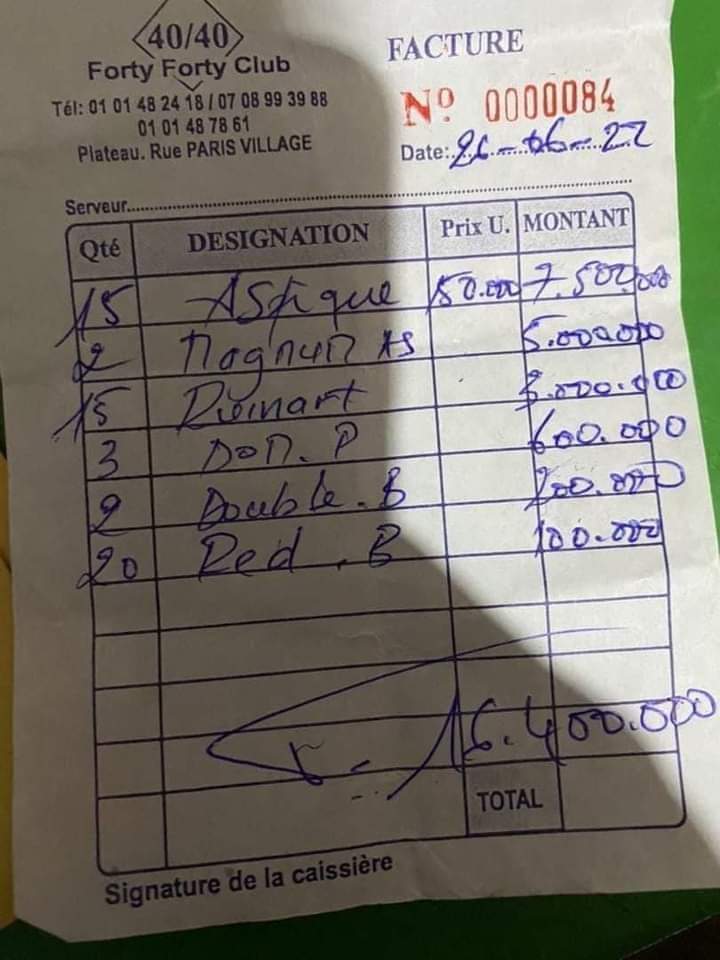 40/40
Forty Forty Club
Tél: 01 01 48 24 18 / 07 08 99 39 88
01 01 48 78 61
Plateau. Rue PARIS VILLAGE
FACTURE
Nº 0000084
Date: 26-06-22
Serveur
Qté DESIGNATION Prix U. MONTANT
15 ASpique 50.000 7.500.000
2 Magnum AS 5.000.000
15 Ruinart 3.000.000
3 Don. P 600.000
2 Double. B 200.000
20 Red. B 100.000
16.400.000
TOTAL
Signature de la caissière